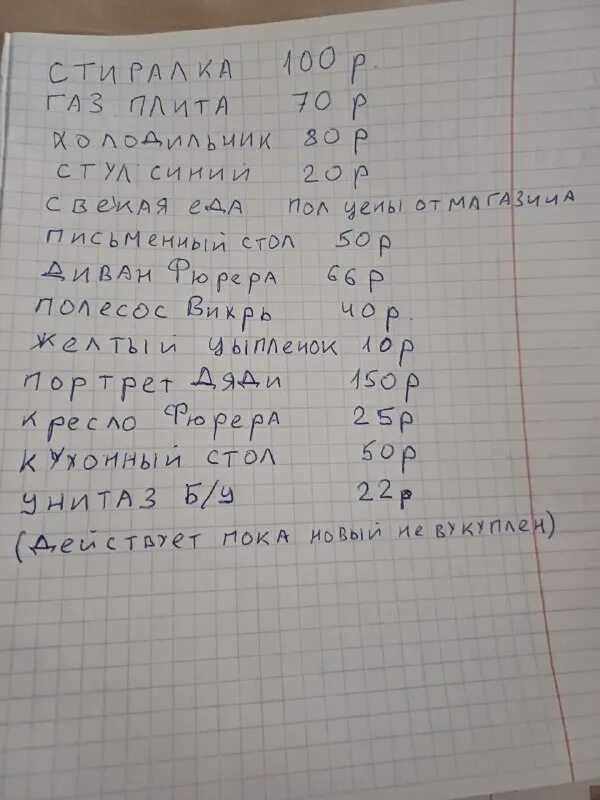 СТИРАЛКА 100 р.
ГАЗ ПЛИТА 70 р
ХОЛОДИЛЬНИК 80 р
СТУЛ СИНИЙ 20 р
СВЕЖАЯ ЕДА ПОЛ ЦЕНЫ ОТ МАГАЗИНА
ПИСЬМЕННЫЙ СТОЛ 50 р
ДИВАН ФЮРЕРА 66 р
ПОЛЕСОС ВИХРЬ 40 р.
ЖЕЛТЫЙ ЦЫПЛЕНОК 10 р
ПОРТРЕТ ДЯДИ 150 р
КРЕСЛО ФЮРЕРА 25 р
КУХОННЫЙ СТОЛ 50 р
УНИТАЗ Б/У 22 р
(ДЕЙСТВУЕТ ПОКА НОВЫЙ НЕ ВУКУПЛЕН)